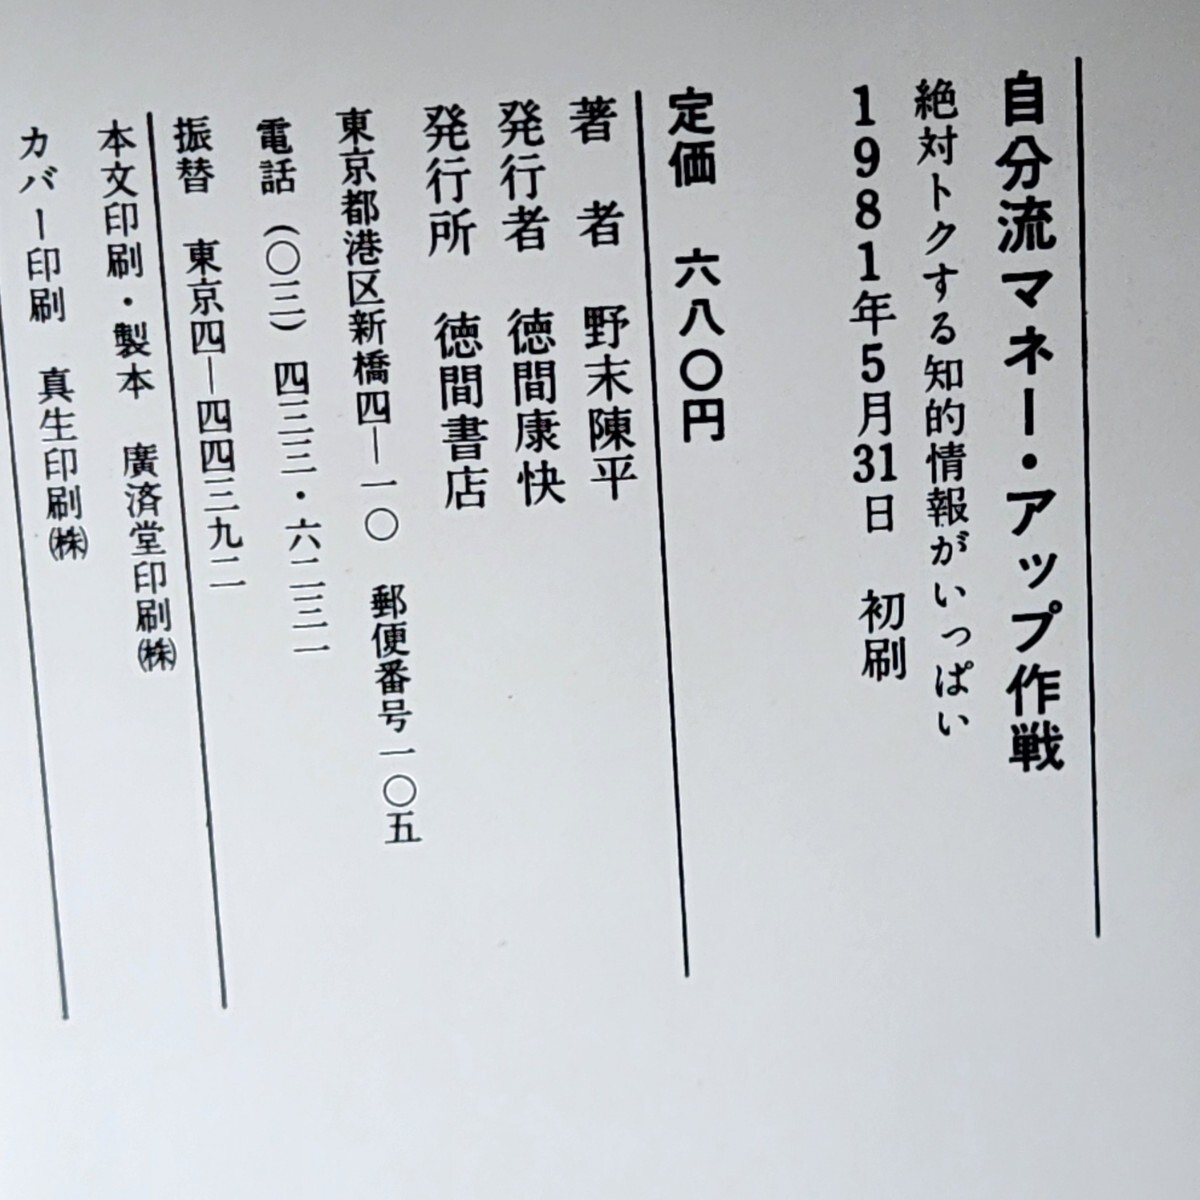 自分流マネー・アップ作戦
絶対トクする知的情報がいっぱい
1981年5月31日　初刷
定価　六八〇円
著　者　野末陳平
発行者　徳間康快
発行所　徳間書店
東京都港区新橋四―一〇　郵便番号一〇五
電話（〇三）四三三・六二三一
振替　東京四―四四三九二
本文印刷・製本　廣済堂印刷㈱
カバー印刷　真生印刷㈱